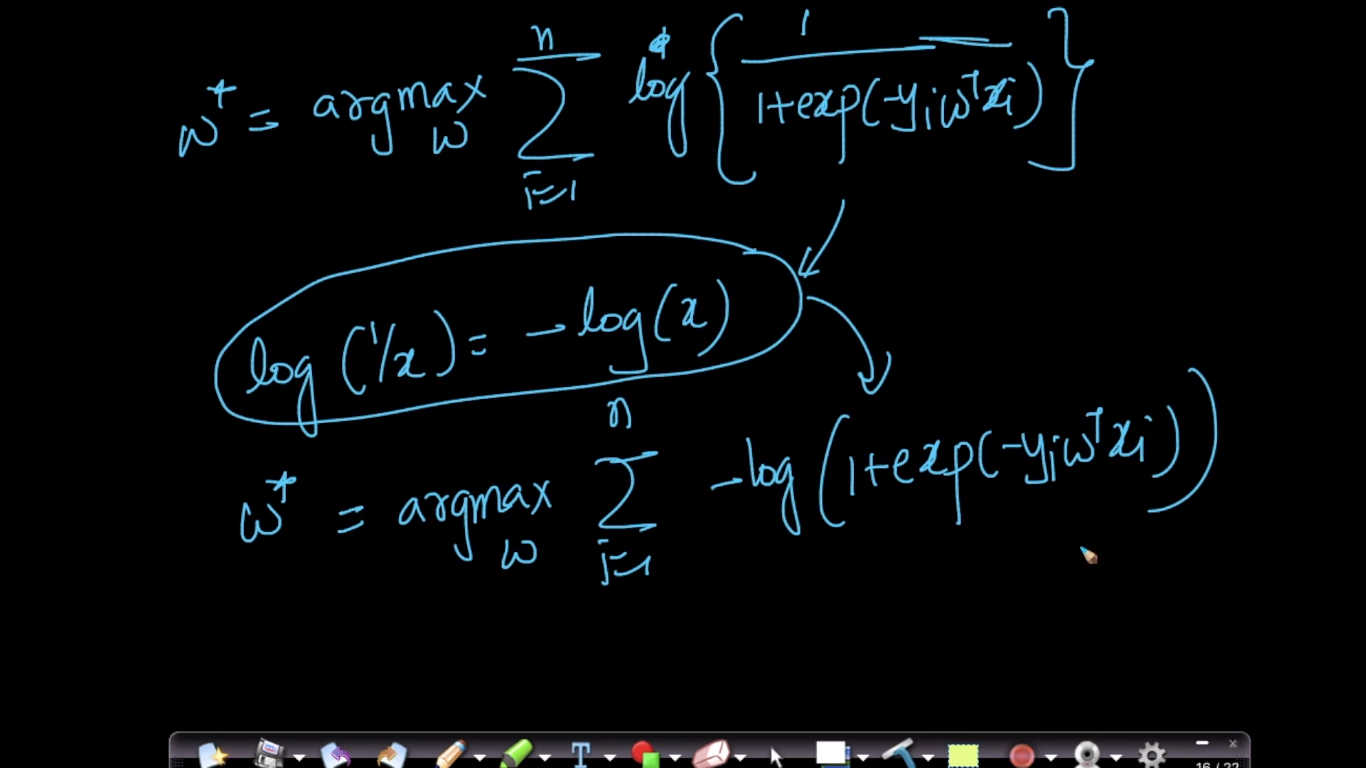 w* = argmax_w Σ_{i=1}^{n} log { 1 / (1+exp(-y_i w^T x_i)) }
log (1/x) = -log(x)
w* = argmax_w Σ_{i=1}^{n} -log (1+exp(-y_i w^T x_i))